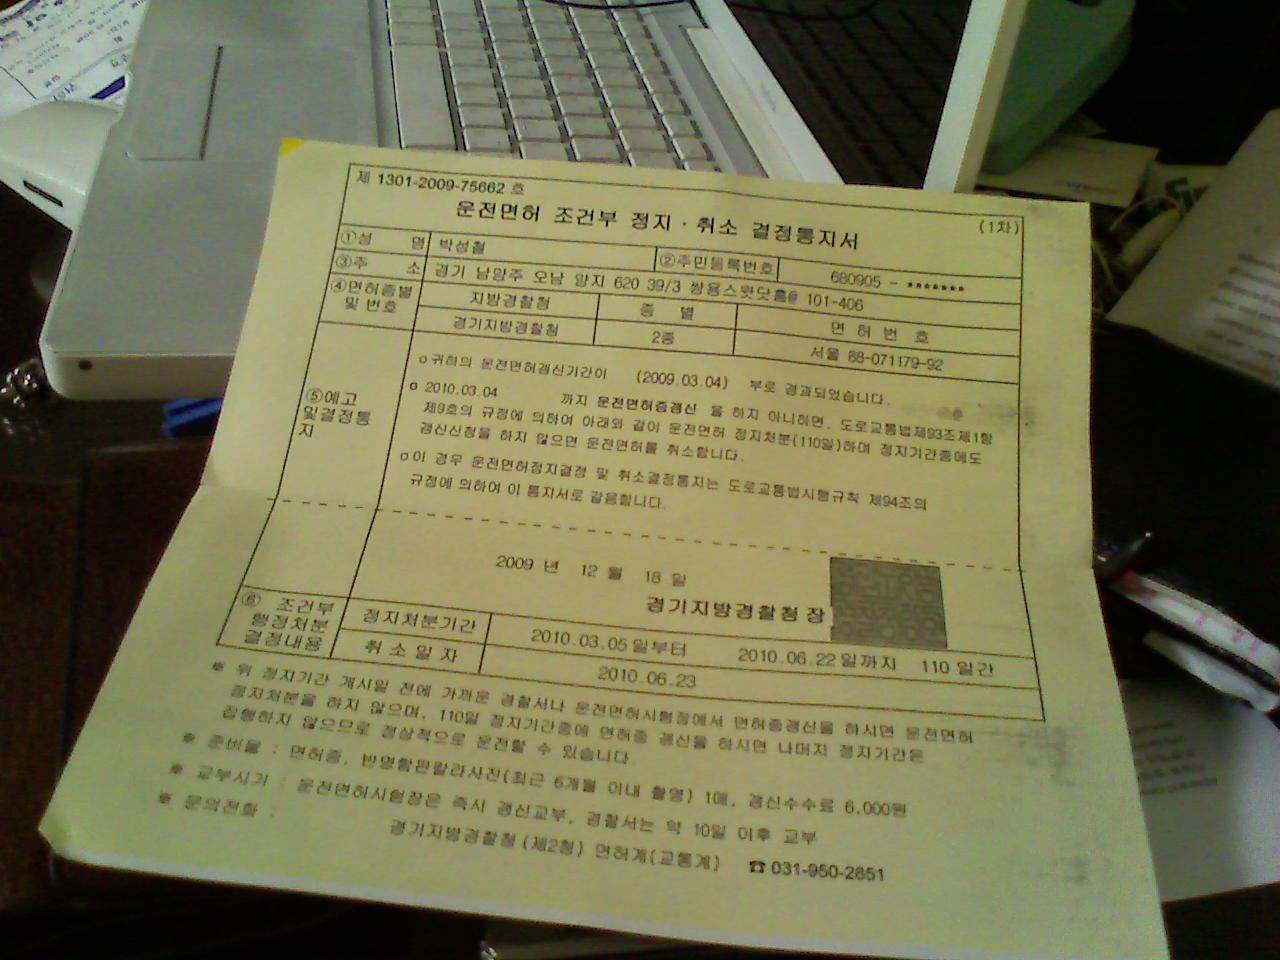 제 1301-2009-75662 호
(1차)
운전면허 조건부 정지 · 취소 결정통지서
①성 명 박성철 ②주민등록번호 680905 - *******
③주 소 경기 남양주 오남 양지 620 39/3 쌍용스윗닷홈@ 101-406
④면허종별 및 번호
지방경찰청 종 별 면 허 번 호
경기지방경찰청 2종 서울 88-071179-92
⑤예고 및결정통지
o 귀하의 운전면허갱신기간이 (2009.03.04) 부로 경과되었습니다.
o 2010.03.04 까지 운전면허증갱신 을 하지 아니하면, 도로교통법제93조제1항
제9호의 규정에 의하여 아래와 같이 운전면허 정지처분(110일)하며 정지기간중에도
갱신신청을 하지 않으면 운전면허를 취소합니다.
o 이 경우 운전면허정지결정 및 취소결정통지는 도로교통법시행규칙 제94조의
규정에 의하여 이 통지서로 갈음합니다.
2009 년 12 월 16 일
경기지방경찰청장
⑥ 조건부 행정처분 결정내용
정지처분기간 2010.03.05일부터 2010.06.22일까지 110 일간
취 소 일 자 2010.06.23
※ 위 정지기간 개시일 전에 가까운 경찰서나 운전면허시험장에서 면허증갱신을 하시면 운전면허
정지처분을 하지 않으며, 110일 정지기간중에 면허증 갱신을 하시면 나머지 정지기간은
집행하지 않으므로 정상적으로 운전할 수 있습니다.
※ 준비물 : 면허증, 반명함판칼라사진(최근 6개월 이내 촬영) 1매, 갱신수수료 6,000원
※ 교부시기 : 운전면허시험장은 즉시 갱신교부, 경찰서는 약 10일 이후 교부
※ 문의전화 : 경기지방경찰청(제2청) 면허계(교통계) ☎ 031-950-2851